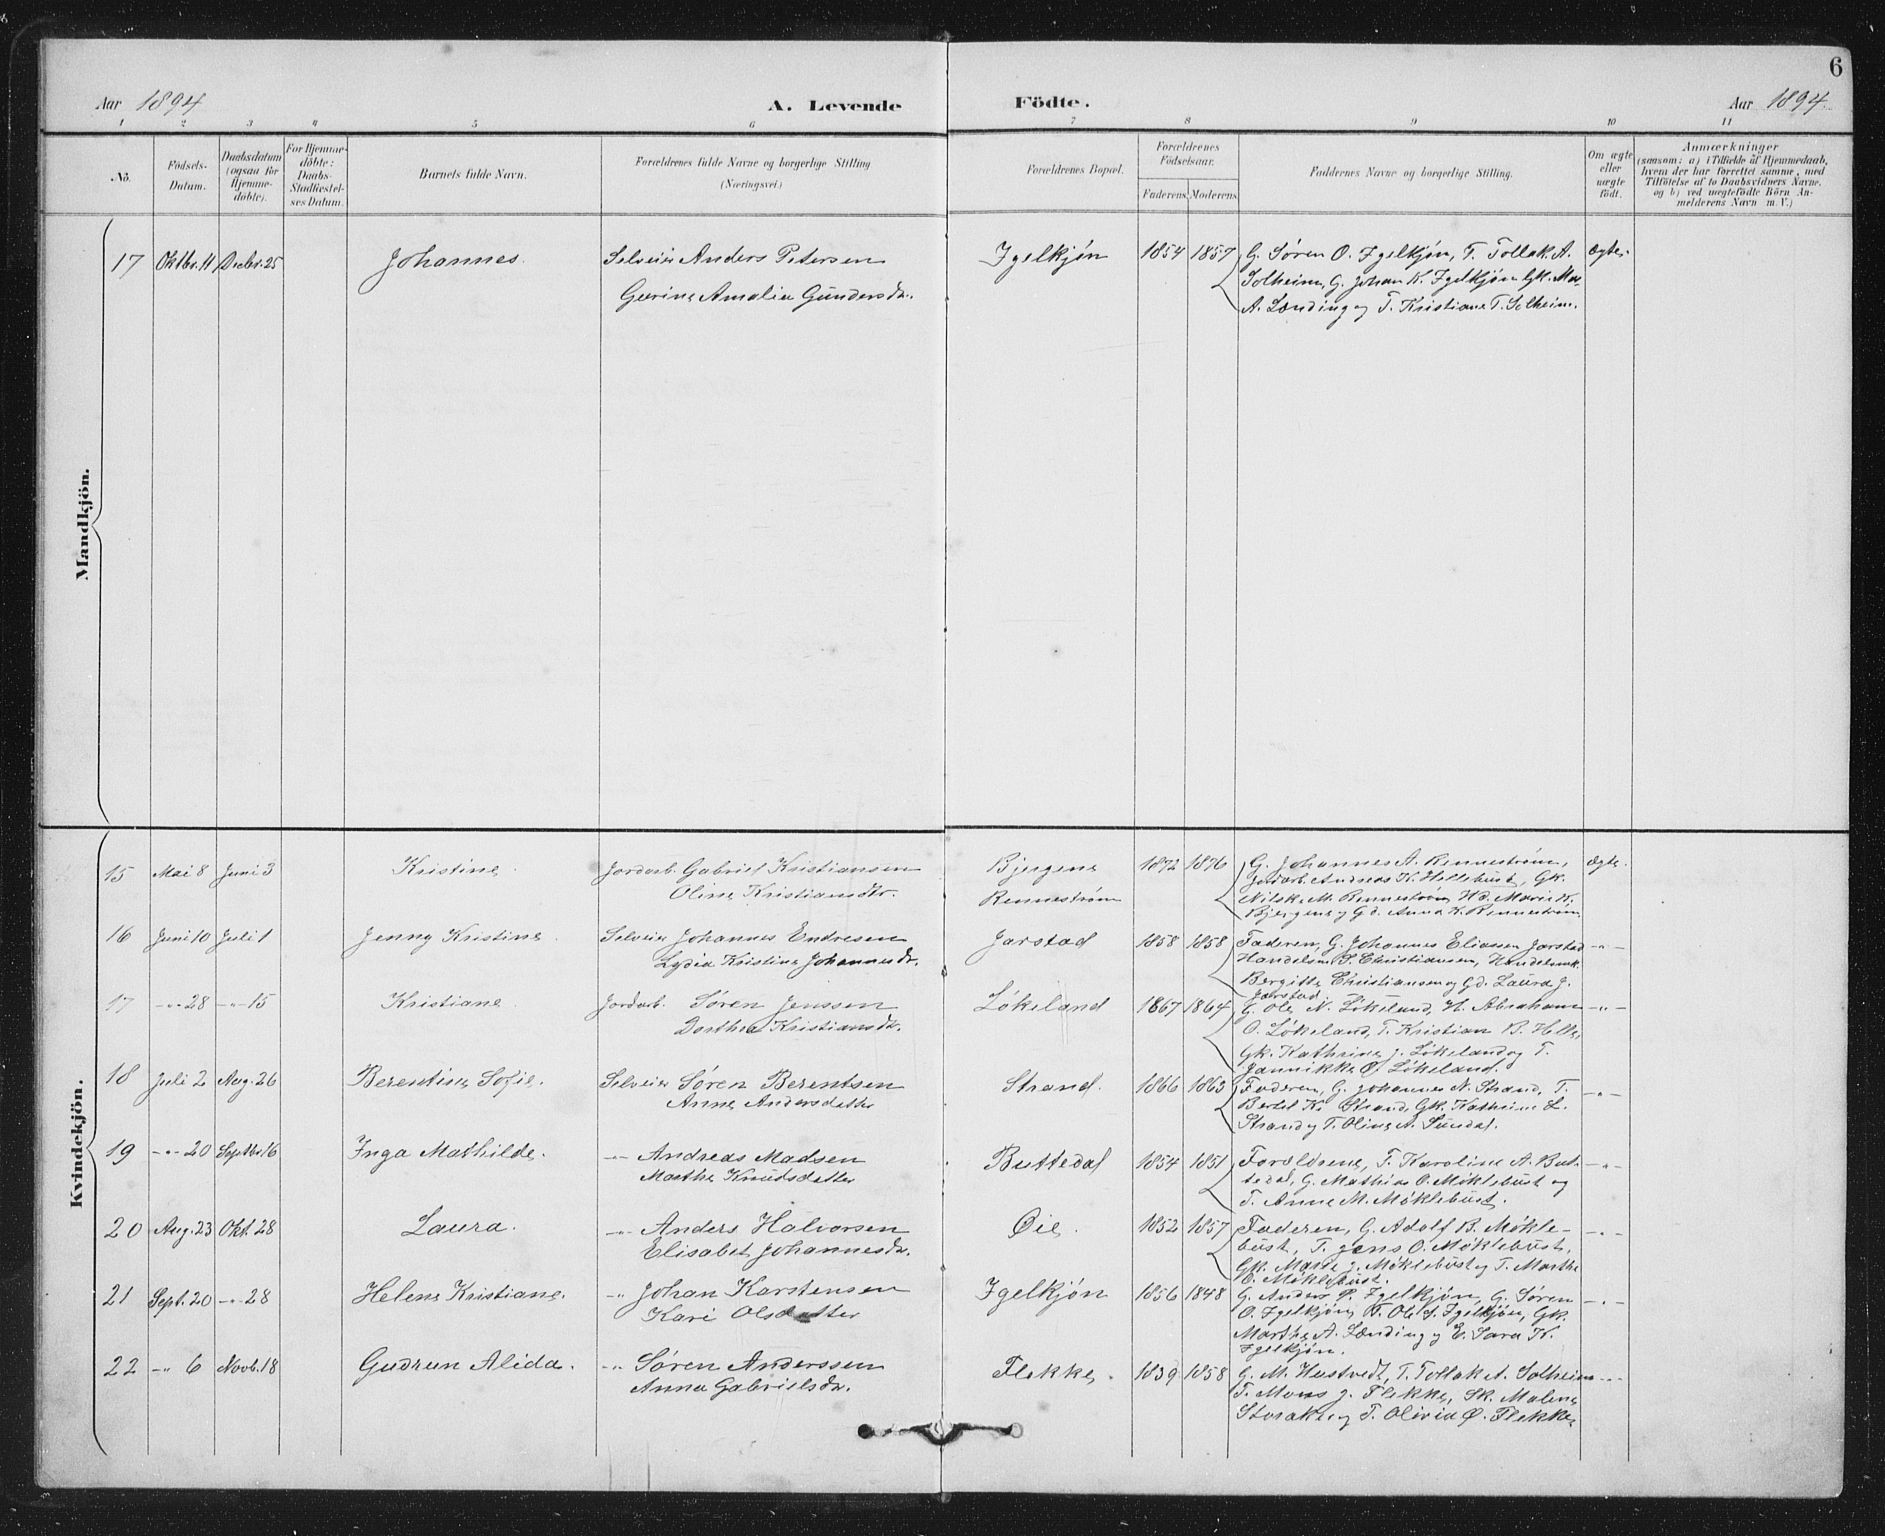 6
Aar 1894
A. Levende
Födte.
Aar 1894.
1 2 3 4 5 6 7 8 9 10 11
No.
Födsels-
Datum.
Daabsdatum
(ogsaa for
Hjemme-
döbte).
For Hjemme-
döbte:
Daabs-
Stadfæstel-
ses Datum.
Barnets fulde Navn.
Forældrenes fulde Navne og borgerlige Stilling
(Næringsvei.)
Forældrenes Bopæl.
Forældrenes
Födselsaar.
Faderens Moderens
Faddernes Navne og borgerlige Stilling.
Om ægte
eller
uægte
födt.
Anmærkninger
(samsom: a) i Tilfælde af Hjemmedaab,
hvem der har forrettet samme, med
Tilföielse af to Daabsvidners Navne,
og b) ved uegtefödte Börn An-
melderens Navn m. V.)
Mandkjön.
17 Oktbr. 11 Decbr. 25 Johannes. Selveier Anders Petersen
Gurine Amalia Gundersdr.
Igelkjøn 1854 1857
G. Søren O. Igelkjøn, T. Tollak A.
Solheim, G. Johan K. Igelkjøn Gk. Mar.
A. Lænding og T. Kristiane T. Solheim.
Ægte.
Kvindekjön.
15 Mai 8 Juni 3 Kristine Jordarb. Gabriel Kristiansen
Oline Kristiansdtr.
Bjergene
Rennestrøm
1872 1876
G. Johannes A. Rennestrøm,
Jordarb. Andreas K. Hellebust, Gk.
Nilske M. Rennestrøm, Kd. Marie K.
Bjergene og Gd. Anna K. Rennestrøm
Ægte.
16 Juni 10 Juli 1 Jenny Kristine. Selveier Johannes Endresen
Lydia Kristine Johannesdr.
Jarstad 1858 1858
Faderen, G. Johannes Eliassen Jarstad
Handelsm. S. Christiansen, Handelsmk.
Bergitte Christiansen og Gd. Laura J.
Jarstad
-"-
17 -"- 28 -"- 15 Kristiane. Jordarb. Søren Jenssen
Dorthea Kristiansdr.
Løkeland 1867 1864
G. Ole N. Løkeland, H. Abraham
O. Løkeland, T. Kristian B. Helle,
Gk. Kathrine J. Løkeland og T.
Jannikke O. Løkeland.
-"-
18 Juli 2 Aug. 26 Berentine Sofie. Selveier Søren Berentsen
Anne Andersdatter
Strand. 1866 1863
Faderen, G. Johannes N. Strand, T.
Bertel K. Strand, Gk. Kathrine L.
Strand og T. Oline A. Sundal.
-"-
19 -"- 20 Septbr. 16 Inga Mathilde. -"- Andreas Madsen
Marthe Knudsdatter
Buttedal 1854 1851
Forældrene, T. Karoline A. But-
tedal, G. Mathias O. Møklebust og
T. Anne M. Møklebust.
-"-
20 Aug. 23 Okt. 28 Laura. -"- Anders Halvorsen
Elisabet Johannesdr.
Øie. 1852 1857
Faderen, G. Adolf B. Møkle-
bust, T. Jens O. Møklebust,
Gk. Marie J. Møklebust og T. Marthe
O. Møklebust.
-"-
21 Sept. 20 -"- 28 Helene Kristiane. -"- Johan Karstensen
Kari Olsdatter
Igelkjøn 1856 1848
G. Anders P. Igelkjøn, G. Søren
O. Igelkjøn, T. Ole S. Igelkjøn, Gk.
Marthe A. Lænding og E. Sara K.
Igelkjøn.
-"-
22 -"- 6 Novb. 18 Gudrun Alida. -"- Søren Anderssen
Anna Gabrielsdr.
Flekke. 1839 1858
G. M. Hustvedt, T. Tollak A. Solheim
T. Mons J. Flekke, Sk. Malene
Storaker og T. Olivia Ø. Flekke.
-"-